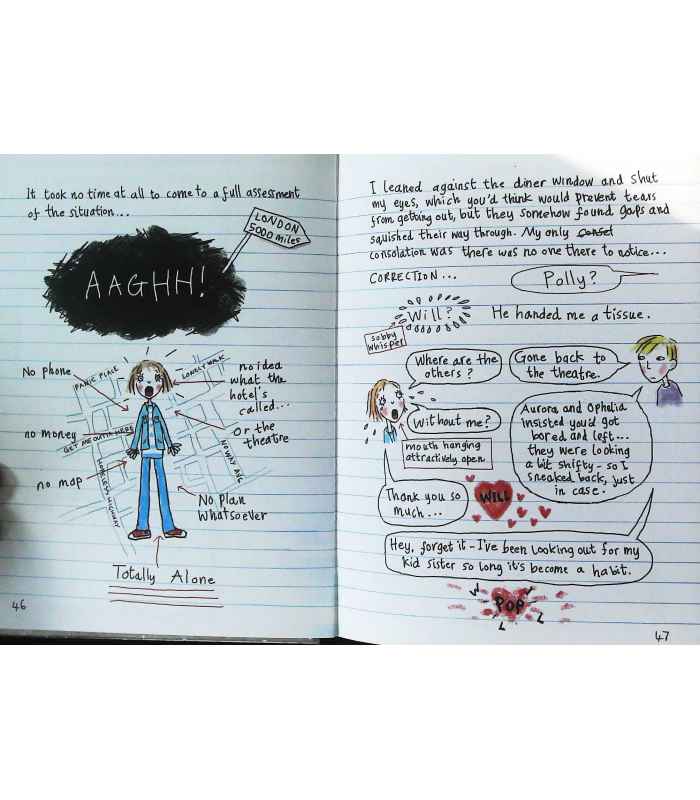 It took no time at all to come to a full assessment
of the situation...
LONDON
5000 miles
AAGHH!
PANIC PLACE
LONELY WALK
No phone
no idea
what the
hotel's
called...
no money
GET ME OUTTA HERE
Or the
theatre
NO WAY AVE
no map
HOPELESS HIGHWAY
No plan
whatsoever
Totally Alone
46
I leaned against the diner window and shut
my eyes, which you'd think would prevent tears
from getting out, but they somehow found gaps and
squished their way through. My only consol
consolation was there was no one there to notice...
CORRECTION...
Polly?
Will?
He handed me a tissue.
sobby
whisper
Where are the
others?
Gone back to
the theatre.
Without me?
mouth hanging
attractively open
Aurora and Ophelia
insisted you'd got
bored and left...
they were looking
a bit shifty - so I
sneaked back, just
in case.
Thank you so
much...
WILL
Hey, forget it - I've been looking out for my
kid sister so long it's become a habit.
POP
W
L
L
47